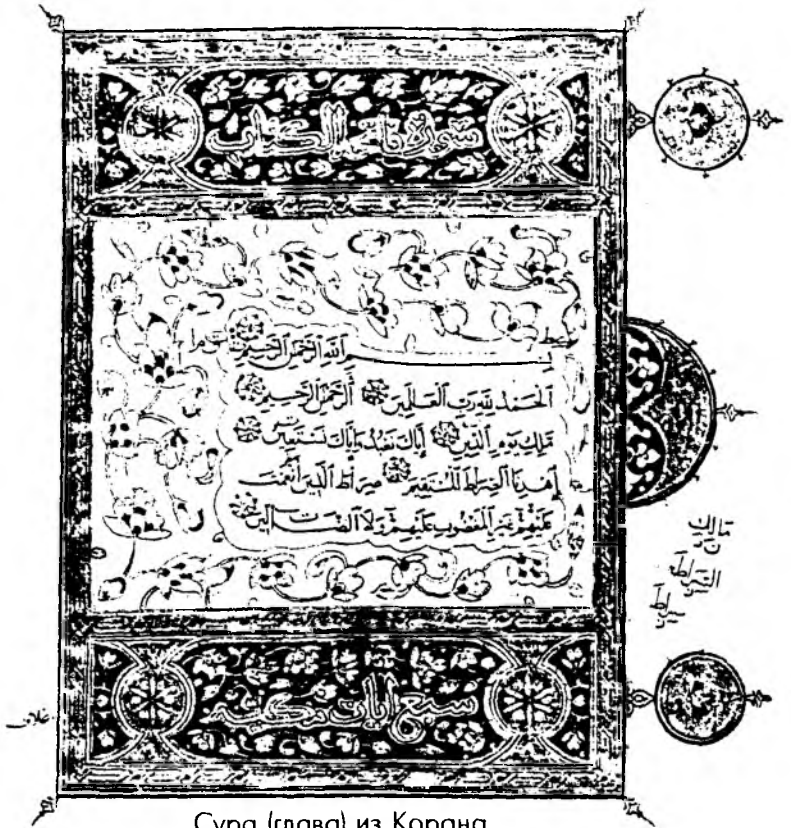 سورة فاتحة الكتاب
بسم الله الرحمن الرحيم
الحمد لله رب العالمين الرحمن الرحيم
ملك يوم الدين إياك نعبد وإياك نستعين
اهدنا الصراط المستقيم صراط الذين أنعمت
عليهم غير المغضوب عليهم ولا الضالين
مالك
الصراط
صراط
سبع آيات مكية
Сура (глава) из Корана